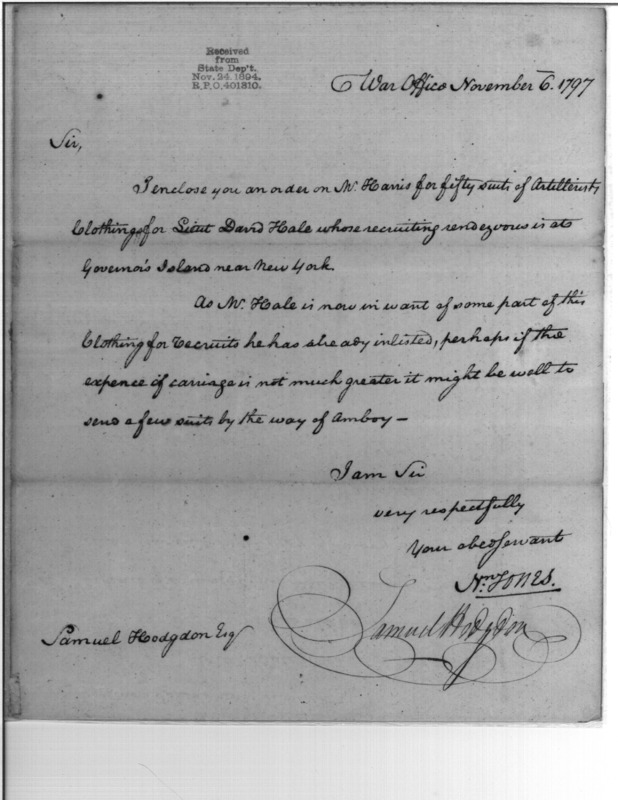 Received
from
State Dep't.
Nov. 24. 1894.
R.P.O. 401810.
War Office November 6. 1797
Sir,
I enclose you an order on Mr. Harris for fifty suits of Artillerists
Clothing, for Lieut David Hale whose recruiting rendezvous is at
Governor's Island near New York.
As Mr. Hale is now in want of some part of this
Clothing for recruits he has already inlisted, perhaps if the
expence of carriage is not much greater it might be well to
send a few suits by the way of Amboy —
I am Sir
very respectfully
Your obed servant
Wm Jones.
Samuel Hodgdon Esq
Samuel Hodgdon